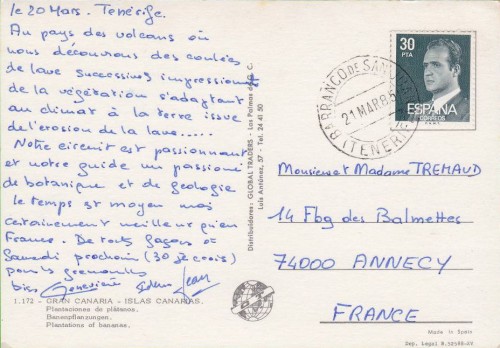 le 20 Mars. Tenérife.
Au pays des volcans où
nous découvrons des coulées
de lave successives impression
de la végétation s'adaptant
au climat à la terre issue
de l'érosion de la lave.....
Notre circuit est passionnant
et notre guide un passionné
de botanique et de géologie
le temps est moyen mais
certainement meilleur qu'en
France. De toutes façons à
Samedi prochain (30 je crois)
pour les
bises Geneviève Jean
1.172 - GRAN CANARIA - ISLAS CANARIAS.
Plantaciones de plátanos.
Bananpflanzungen.
Plantations of bananas.
Distribuidores: GLOBAL TRADERS - Las Palmas de G. C.
Luis Antúnez, 57 - Tel. 24 41 50
30
PTA
ESPAÑA
CORREOS
BARRANCO DE SAN
21 MAR 85
(TENERIFE
Monsieur et Madame TREMAUD
14 Fbg des Balmettes
74000 ANNECY
FRANCE
Made in Spain
Dep. Legal B.